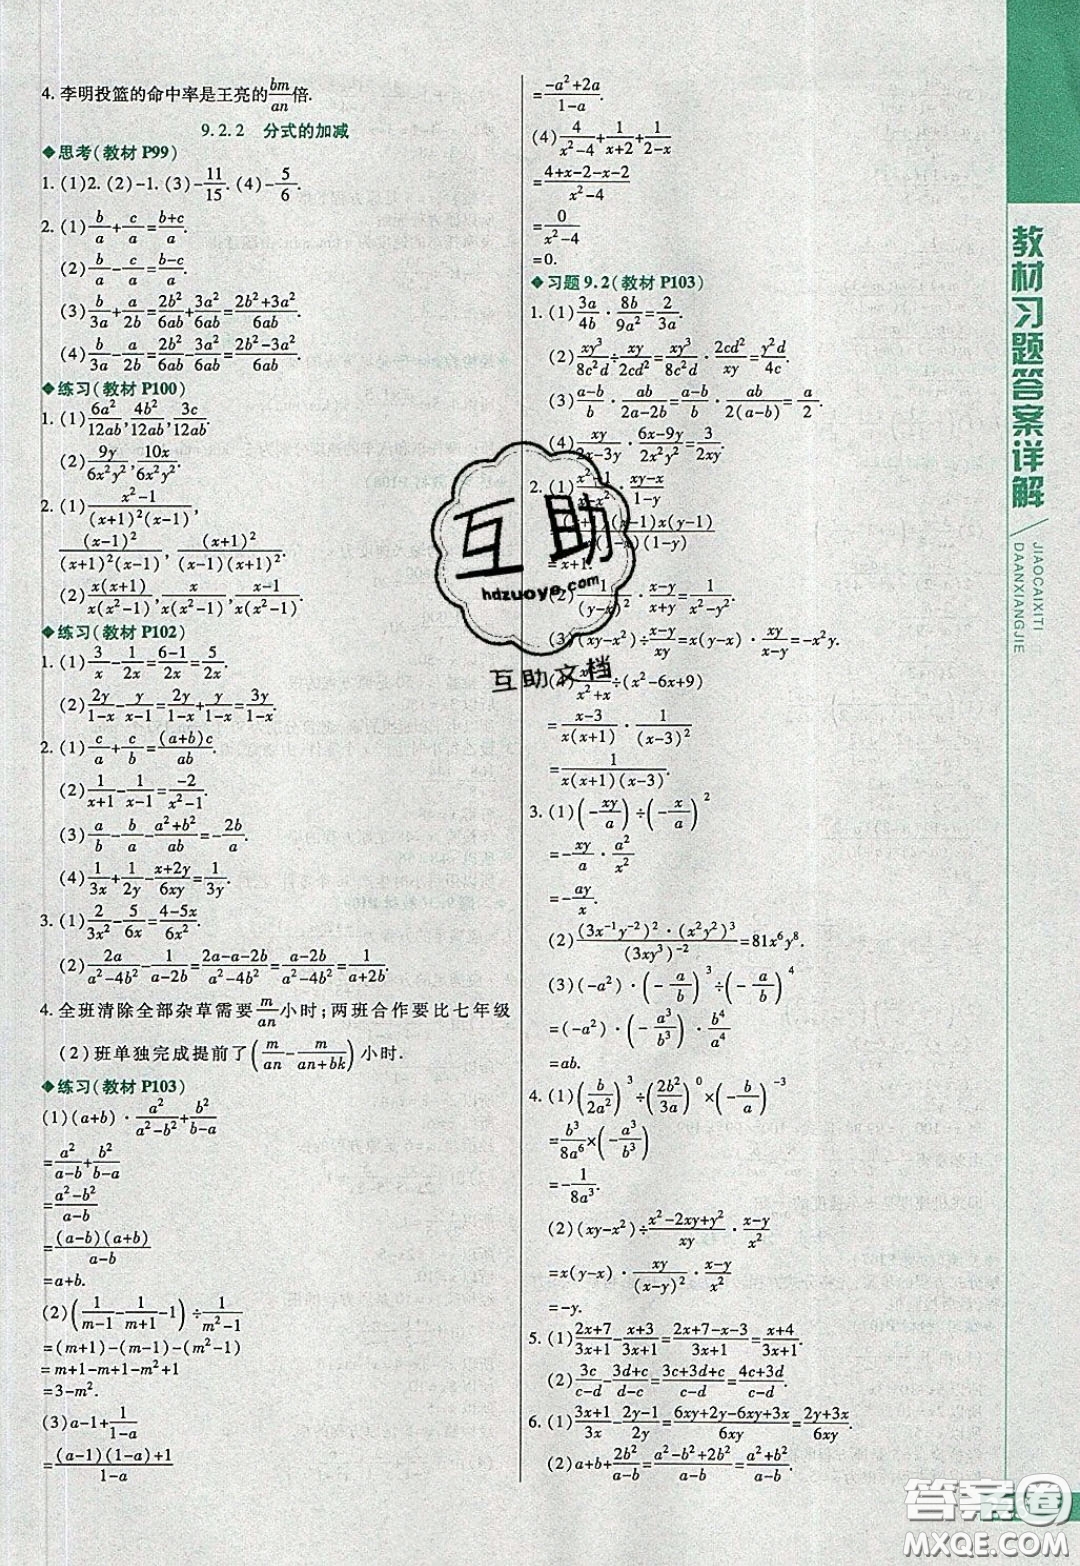 4. 李明投篮的命中率是王亮的bm/an倍.
9.2.2 分式的加减
◆思考(教材 P99)
1. (1)2. (2)-1. (3)-11/15. (4)-5/6.
2. (1)b/a+c/a=(b+c)/a.
(2)b/a-c/a=(b-c)/a.
(3)b/3a+a/2b=2b²/6ab+3a²/6ab=(2b²+3a²)/6ab.
(4)b/3a-a/2b=2b²/6ab-3a²/6ab=(2b²-3a²)/6ab.
◆练习(教材 P100)
1. (1)6a²/12ab,4b²/12ab,3c/12ab.
(2)9y/6x²y²,10x/6x²y².
2. (1)(x²-1)/((x+1)²(x-1)),
(x-1)²/((x+1)²(x-1)),(x+1)²/((x+1)²(x-1)).
(2)x(x+1)/x(x²-1),(x-1)/x(x²-1).
◆练习(教材 P102)
1. (1)3/x-1/2x=(6-1)/2x=5/2x.
(2)2y/(1-x)-y/(x-1)=2y/(1-x)+y/(1-x)=3y/(1-x).
2. (1)c/a+c/b=(a+b)c/ab.
(2)1/(x+1)-1/(x-1)=-2/(x²-1).
(3)a/b-b/a-(a²+b²)/ab=-2b/a.
(4)1/3x+1/2y-(x+2y)/6xy=1/3y.
3. (1)2/3x²-5/6x=(4-5x)/6x².
(2)2a/(a²-4b²)-1/(a-2b)=(2a-a-2b)/(a²-4b²)=(a-2b)/(a²-4b²)=1/(a+2b).
4. 全班清除全部杂草需要m/an小时;两班合作要比七年级
(2)班单独完成提前了(m/an-m/(an+bk))小时.
◆练习(教材 P103)
(1)(a+b)·a²/(a²-b²)+b²/(b-a)
=a²/(a-b)+b²/(b-a)
=(a²-b²)/(a-b)
=(a-b)(a+b)/(a-b)
=a+b.
(2)(1/(m-1)-1/(m+1)-1)÷1/(m²-1)
=(m+1)-(m-1)-(m²-1)
=m+1-m+1-m²+1
=3-m².
(3)a-1+1/(1-a)
=((a-1)(1-a)+1)/(1-a)
=(-a²+2a)/(1-a).
(4)4/(x²-4)+1/(x+2)+1/(2-x)
=(4+x-2-x-2)/(x²-4)
=0/(x²-4)
=0.
◆习题 9.2(教材 P103)
1. (1)3a/4b·8b/9a²=2/3a.
(2)xy³/8c²d÷xy/2cd²=xy³/8c²d·2cd²/xy=y²d/4c.
(3)(a-b)/b·ab/(2a-2b)=(a-b)/b·ab/2(a-b)=a/2.
(4)xy/(2x-3y)·(6x-9y)/2x²y²=3/2xy.
2. (1)(x²-1)/(x-x²)·(xy-x)/(1-y)
(x-1)x(y-1)
=x+1.
(2)/(y-x)²·(x-y)/(x+y)=x²/(x²-y²).
(3)(xy-x²)÷(x-y)/xy=x(y-x)·xy/(x-y)=-x²y.
(4)/(x²+x)÷(x²-6x+9)
=(x-3)/x(x+1)·1/(x-3)²
=1/x(x+1)(x-3).
3. (1)(-xy/a)÷(-x/a)²
=-xy/a·a²/x²
=-ay/x.
(2)(3x⁻¹y⁻²)²·(x²y²)³/(3xy³)⁻²=81x⁶y⁸.
(3)(-a²)·(-a/b)³÷(-a/b)⁴
=(-a²)·(-a³/b³)·b⁴/a⁴
=ab.
4. (1)(b/2a²)³÷(2b²/3a)⁰×(-b/a)⁻³
=b³/8a⁶×(-a³/b³)
=-1/8a³.
(2)(xy-x²)÷(x²-2xy+y²)/xy·(x-y)/x²
=x(y-x)·xy/(x-y)²·(x-y)/x²
=-y.
5. (1)(2x+7)/(3x+1)-(x+3)/(3x+1)=(2x+7-x-3)/(3x+1)=(x+4)/(3x+1).
(2)3c/(c-d)-(3d+c)/(d-c)=(3c+3d+c)/(c-d)=(4c+3d)/(c-d).
6. (1)(3x+1)/3x-(2y-1)/2y=(6xy+2y-6xy+3x)/6xy=(2y+3x)/6xy.
(2)a+b+2b²/(a-b)=(a²-b²+2b²)/(a-b)=(a²+b²)/(a-b).
教材习题答案详解
JIAOCAIXITI
DAANXIANGJIE
互助
hdzuoye.com
互助文档
答案圈
MXQE.COM